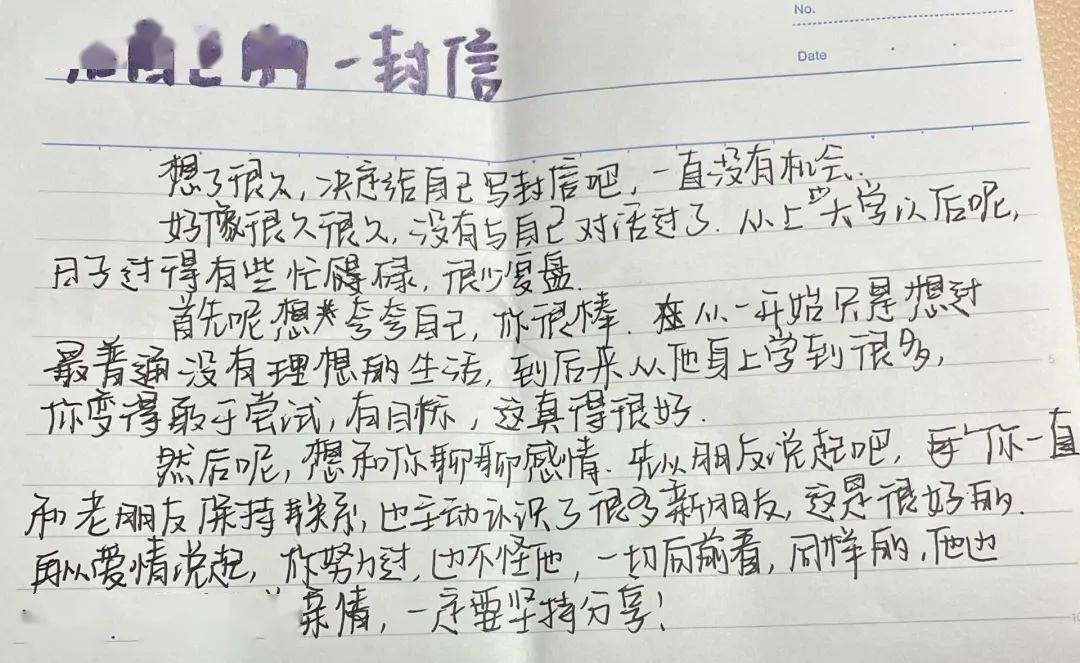 No.
Date
一封信
想了很久,决定给自己写封信吧,一直没有机会.
好像很久很久,没有与自己对话过了.从上大学以后呢,
日子过得有些忙碍碌,很少复盘.
首先呢想夸夸自己,你很棒.从一开始只是想过
最普通没有理想的生活,到后来从他身上学到很多,
你变得敢于尝试,有目标,这真得很好.
然后呢,想和你聊聊感情.先从朋友说起吧,你一直
和老朋友保持联系,也主动认识了很多新朋友,这是很好的.
再从爱情说起,你努力过,也不怪他,一切向前看,同样的,他也
亲情,一定要坚持分享!
5
10